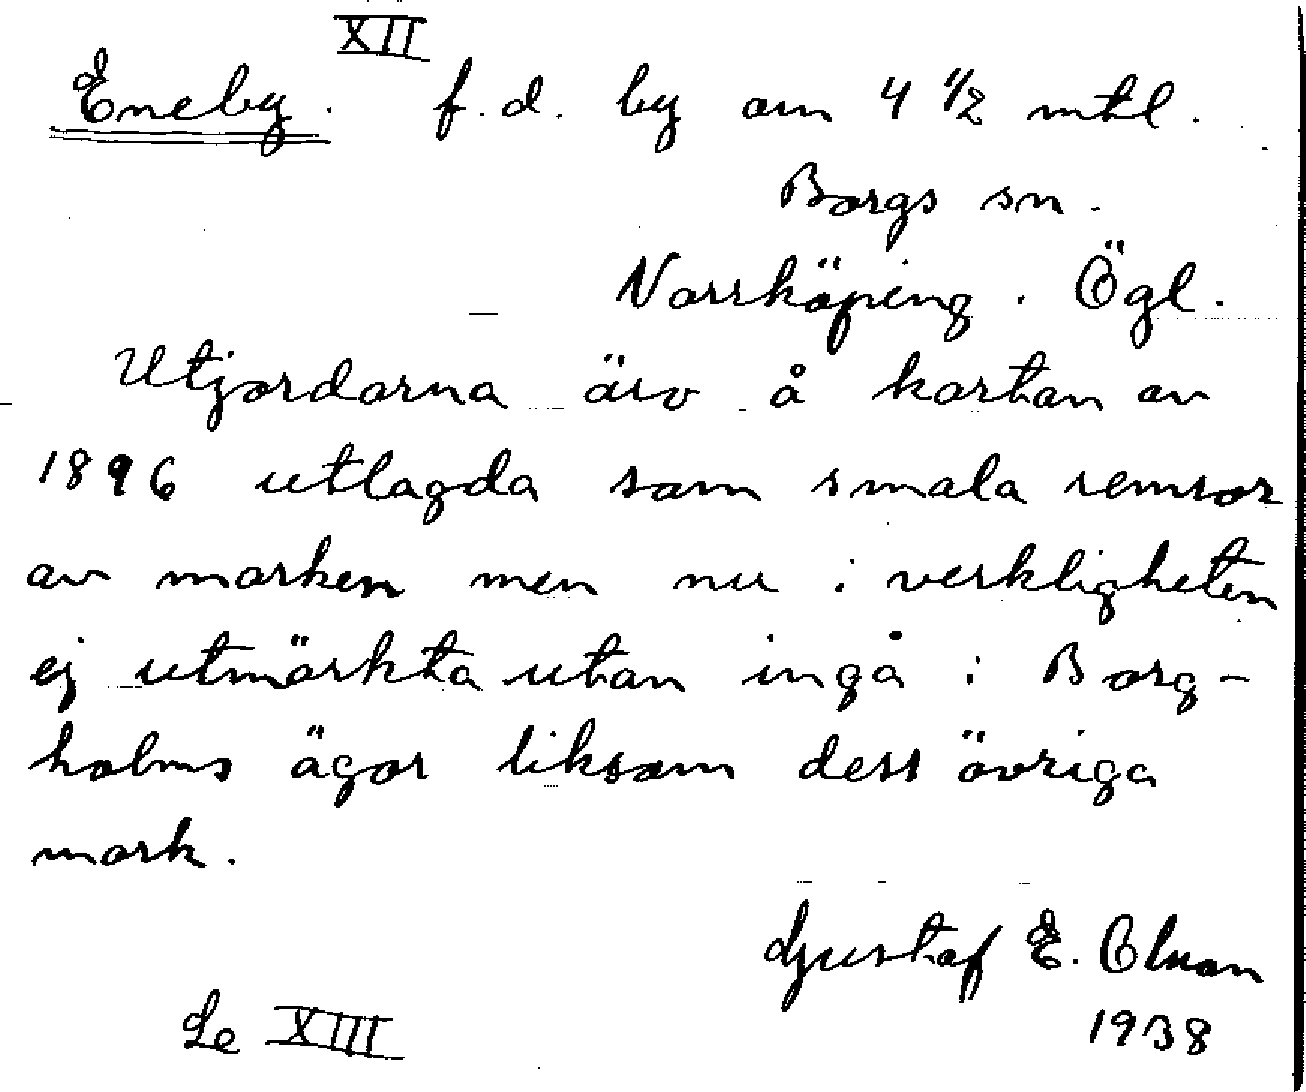 XII
Eneby. f.d. by om 4 1/2 mtl.
Borgs sn.
Norrköping. Ögl.
Utjordarna äro å kartan av
1896 utlagda som smala remsor
av marken men nu i verkligheten
ej utmärkta utan ingå i Borg-
holms ägor liksom dess övriga
mark.
Gustaf E. Olsson
1938
Se XIII